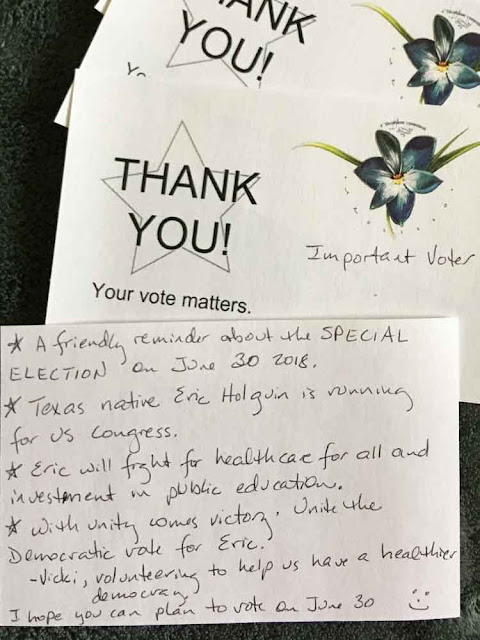 THANK
YOU!
Yo
THANK
YOU!
Important Voter
Your vote matters.
* A friendly reminder about the SPECIAL
ELECTION on June 30 2018.
* Texas native Eric Holguin is running
for US Congress.
* Eric will fight for healthcare for all and
investment in public education.
* With unity comes victory. Unite the
Democratic vote for Eric.
-Vicki, volunteering to help us have a healthier
democracy
I hope you can plan to vote on June 30